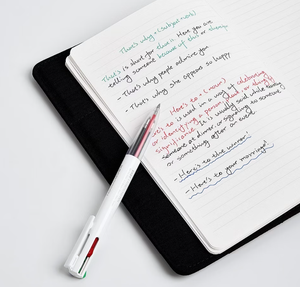 That's why + (subject + verb)
That's is short for that is. Here you are
telling someone because of this or
- That's why people admire you
- That's why she appears so happy
Here's to + (noun)
Here's to is used in a way of celebrating
or a person, deed or
significance. It is usually said while
someone at dinner or signaling to someone
or something after an event.
- Here's to the winner!
- Here's to your marriage!